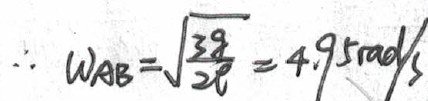 ∴ ω_AB = √(3g/2ℓ) = 4.95 rad/s